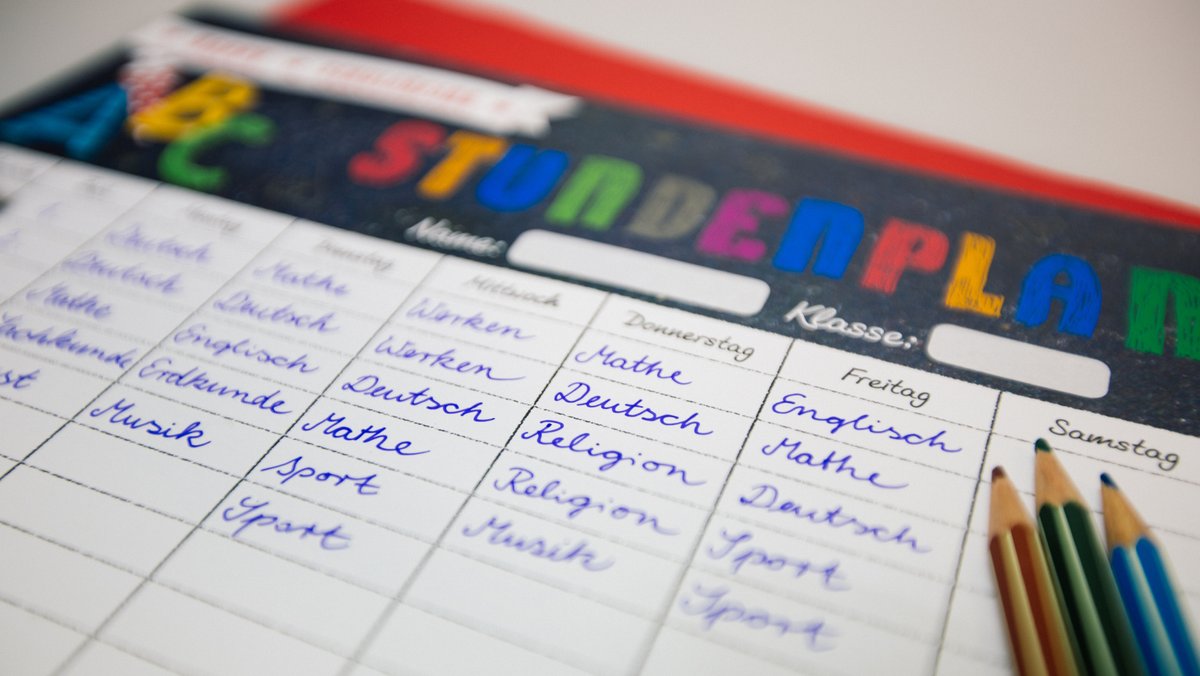 ABC
STUNDENPLAN
Name:
Klasse:
Montag
Deutsch
Deutsch
Mathe
Sachkunde
st
Dienstag
Mathe
Deutsch
Englisch
Erdkunde
Musik
Mittwoch
Werken
Werken
Deutsch
Mathe
Sport
Sport
Donnerstag
Mathe
Deutsch
Religion
Religion
Musik
Freitag
Englisch
Mathe
Deutsch
Sport
Sport
Samstag